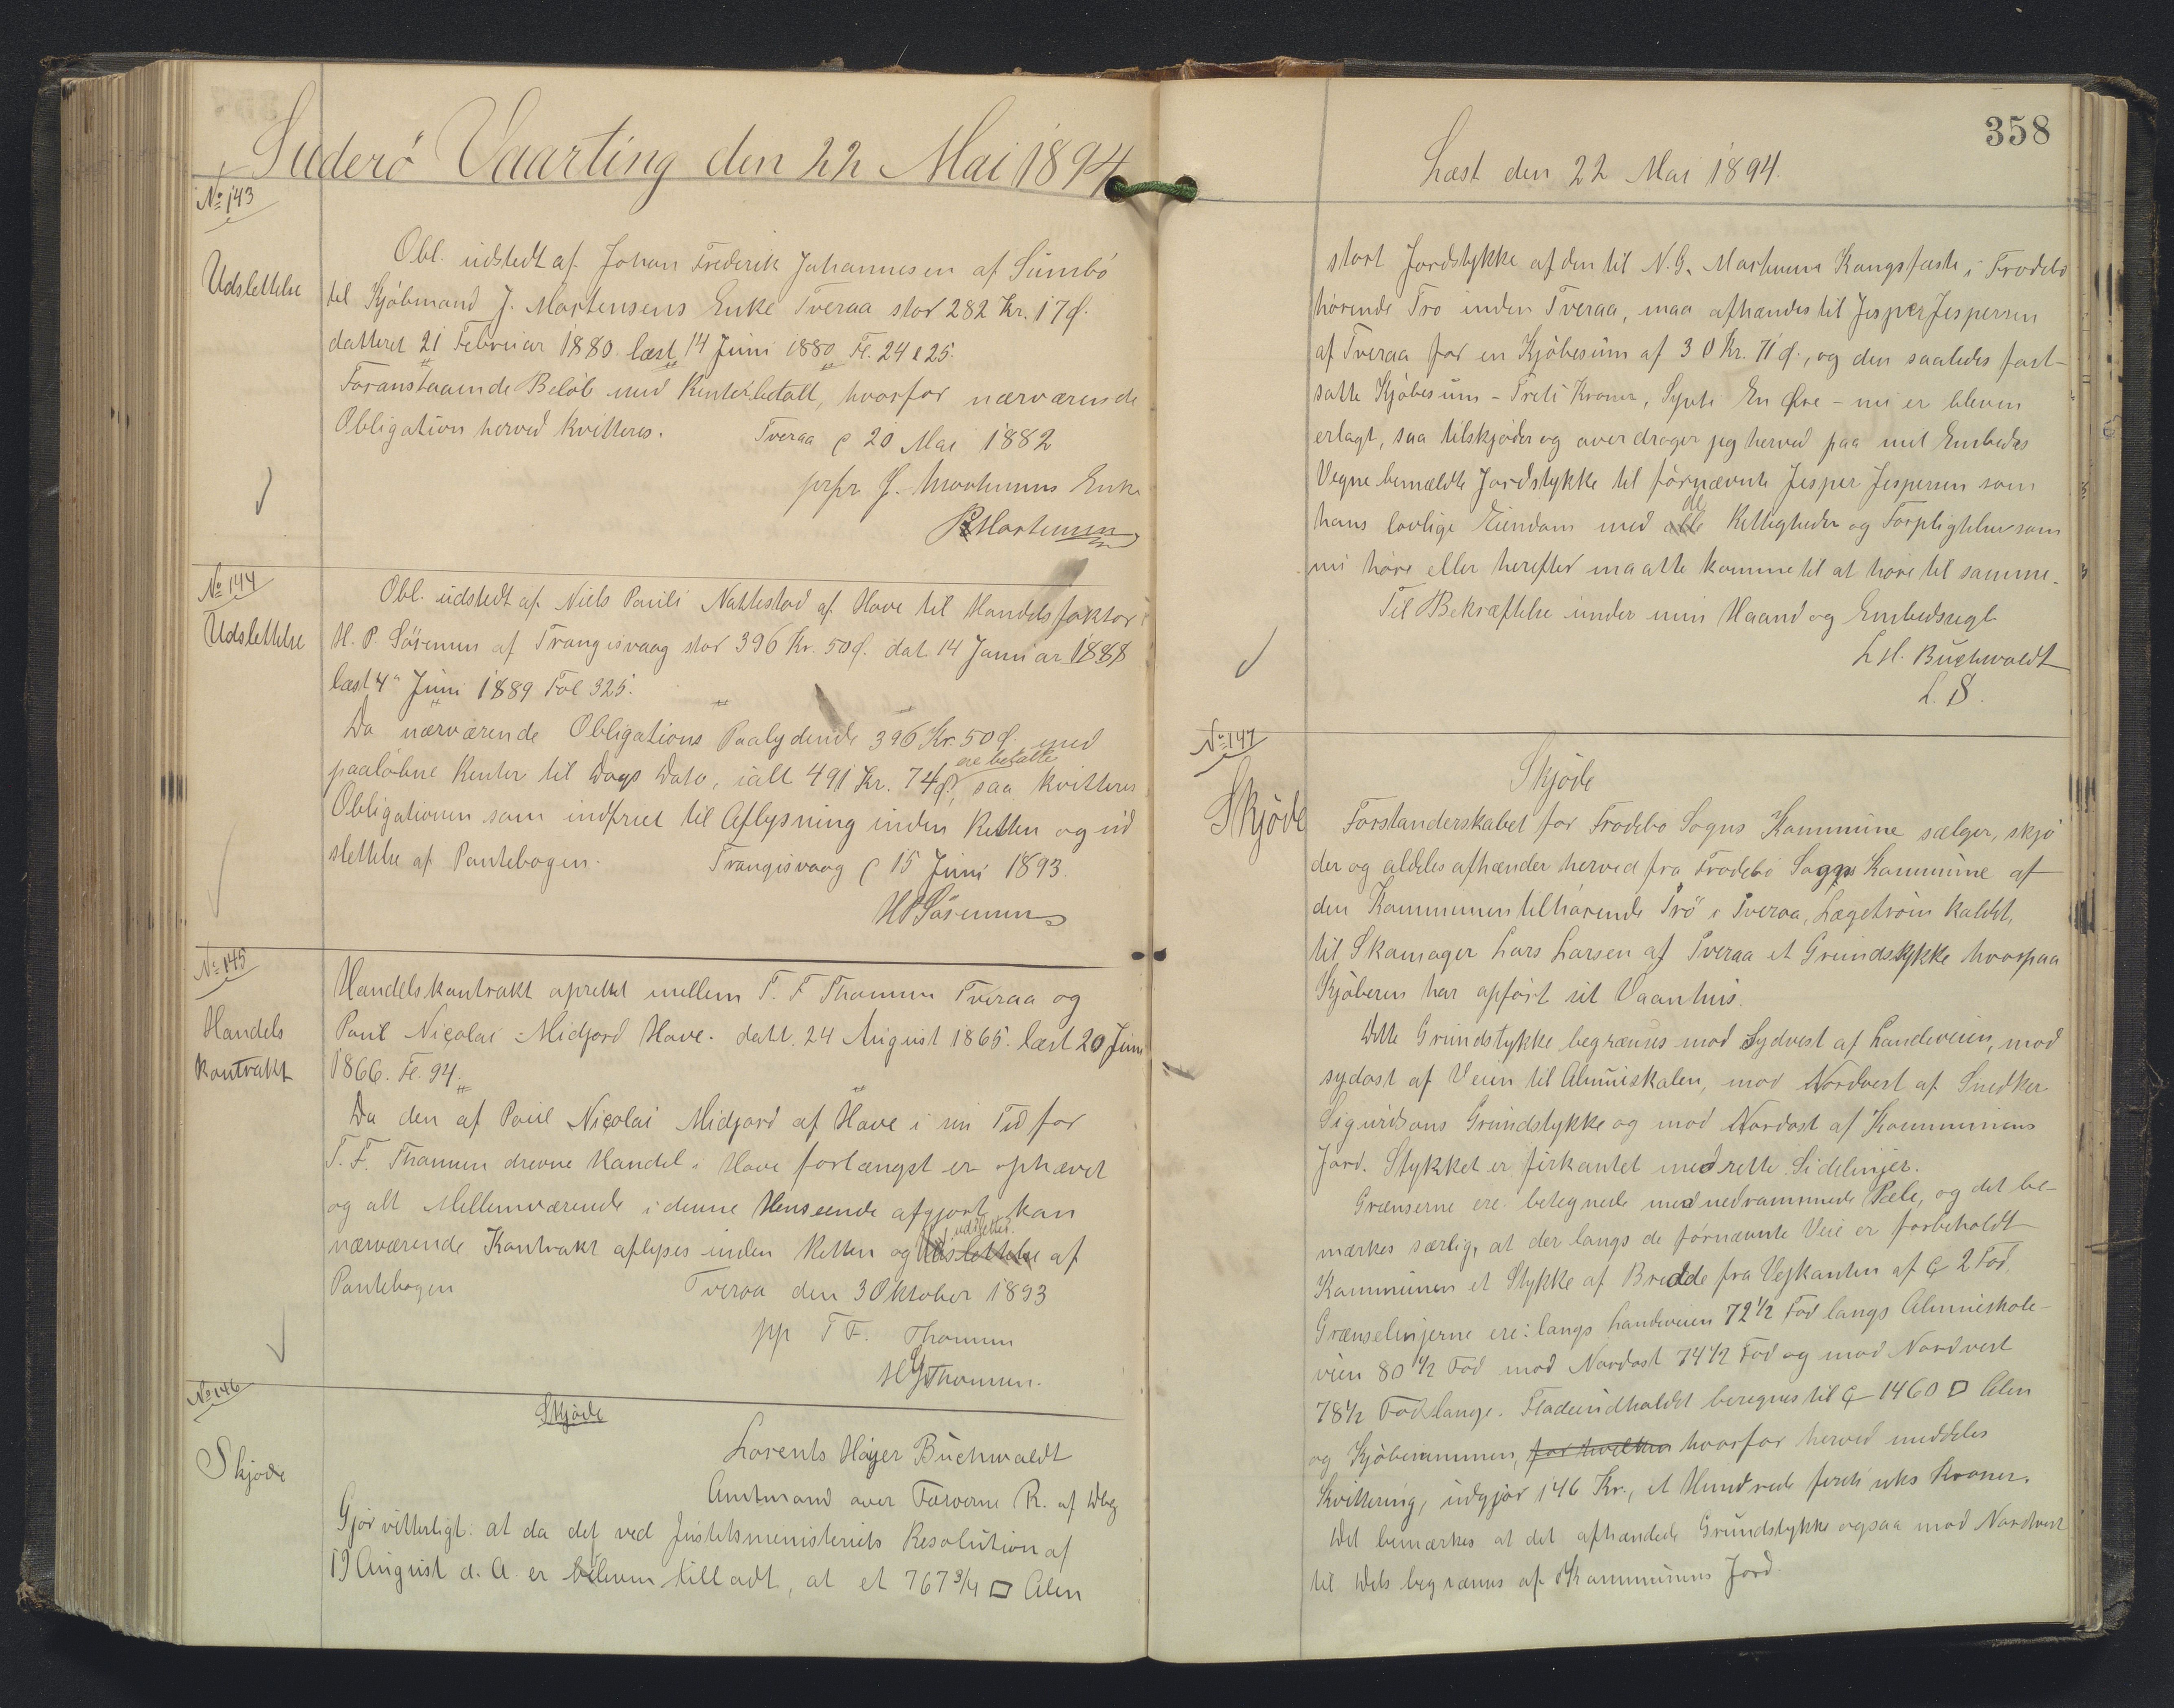 Suderö Vaarting den 22 Mai 1894
No 143
Udslettelse
Obl. udstedt af Johan Frederik Johannesen af Sumbö
til Kjöbmand J. Mortensens Enke Tveraa stor 282 Kr. 17 Ø.
datteret 21 Februar 1880 læst 14 Juni 1880 Fl. 24 & 25.
Foranstaaende Belöb med Renter betalt, hvorfor nærværende
Obligation herved kvitteres. Tveraa 20 Mai 1882
prpr J. Mortensens Enke
P Mortensen
No 144
Udslettelse
Obl. udstedt af Niels Pauli Nattestad af Hove til Handelsfaktor
H. P. Sörensen af Trangisvaag stor 396 Kr. 50 Ø. dat 14 Januar 1888
læst 4 Juni 1889 Fol 325.
Da nærværende Obligations Paalydende 396 Kr. 50 Ø. med
paalöbne Renter til Dags Dato, ialt 491 Kr. 74 Ø, ere betalte saa kvitteres
Obligationen som indfriet til Aflysning inden Retten og ud
slettelse af Pantebogen. Trangisvaag 15 Juni 1893.
HP Sörensen
No 145
Handels
kontrakt
Handelskontrakt oprettet mellem T. F Thomsen Tveraa og
Poul Nicolai Midjord Hove. datt. 24 August 1865. læst 20 Juni
1866. Fl. 94.
Da den af Poul Nicolai Midjord af Hove i sin Tid for
T. F. Thomsen drevne Handel i Hove forlængst er ophævet
og alt Mellemværende i denne Henseende afgjort, kan
nærværende Kontrakt aflyses inden Retten og udslettes af
Pantebogen Tveraa den 3 Oktober 1893
pp T F. Thomsen
Thomsen.
No 146
Skjöde
Skjöde
Lorents Höyer Buchwaldt
Amtmand over Færöerne R. af Dbg
Gjör vitterligt: at da det ved Justitsministeriets Resolution af
19 August d. A. er bleven tilladt, at et 767 3/4 □ Alen
358
Læst den 22 Mai 1894.
stort Jordstykke af den til N. G. Mortensens Kongsfæste i Frodebö
hörende Trö inden Tveraa, maa afhændes til Jesper Jespersen
af Tveraa for en Kjöbesum af 30 Kr. 71 Ø., og den saaledes fast-
satte Kjöbesum - Treti Kroner, Sytti En Øre - nu er bleven
erlagt, saa tilskjöder og overdrager jeg herved paa mit Embedes
Vegne bemældte Jordstykke til förnævnte Jesper Jespersen som
hans lovlige Eiendom med de Rettigheder og Forpligtelser som
nu höre eller herefter maatte komme til at höre til samme.
Til Bekræftelse under min Haand og Embedssegl
L H. Buchwaldt
L. S.
No 147
Skjöde
Skjöde
Forstanderskabet for Frodebö Sogns Kommune sælger, skjö
der og aldeles afhænder herved fra Frodebö Sogns Kommune af
den Kommunen tilhörende Trö i Tveraa, Lægetröin kaldet,
til Skomager Lars Larsen af Tveraa et Grundstykke hvorpaa
Kjöberen har opfört sit Vaanhus.
Dette Grundstykke begrænses mod Sydvest af Landeveien, mod
sydost af Veien til Almueskolen, mod Nordvest af Snedker
Sigurdsons Grundstykke og mod Nordost af Kommunens
Jord. Stykket er firkantet med rette Sidelinjer.
Grænserne ere betegnede med nedrammede Pæle, og det be-
mærkes særlig, at der langs de förnævnte Veie er forbeholdt
Kommunen et Stykke af Bredde fra Vejkanten af 2 Fod.
Grænselinjerne ere: langs Landeveien 72 1/2 Fod langs Almueskole-
veien 80 1/2 Fod mod Nordost 74 1/2 Fod og mod Nordvest
78 1/2 Fod lange. Fladeindholdet beregnes til 1460 □ Alen
og Kjöbesummen, for hvilken hvorfor herved meddeles
Kvittering, udgjör 146 Kr., et Hundrede firti seks Kroner.
Det bemærkes at det afhændede Grundstykke ogsaa mod Nordvest
til Dels begrænses af Kommunens Jord.